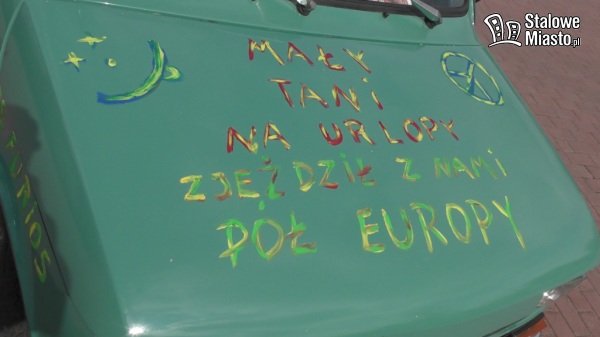 Stalowe
Miasto.pl
MAŁY
TANi
NA URLOPY
ZJEŹDZIŁ Z NAMI
PÓŁ EUROPY